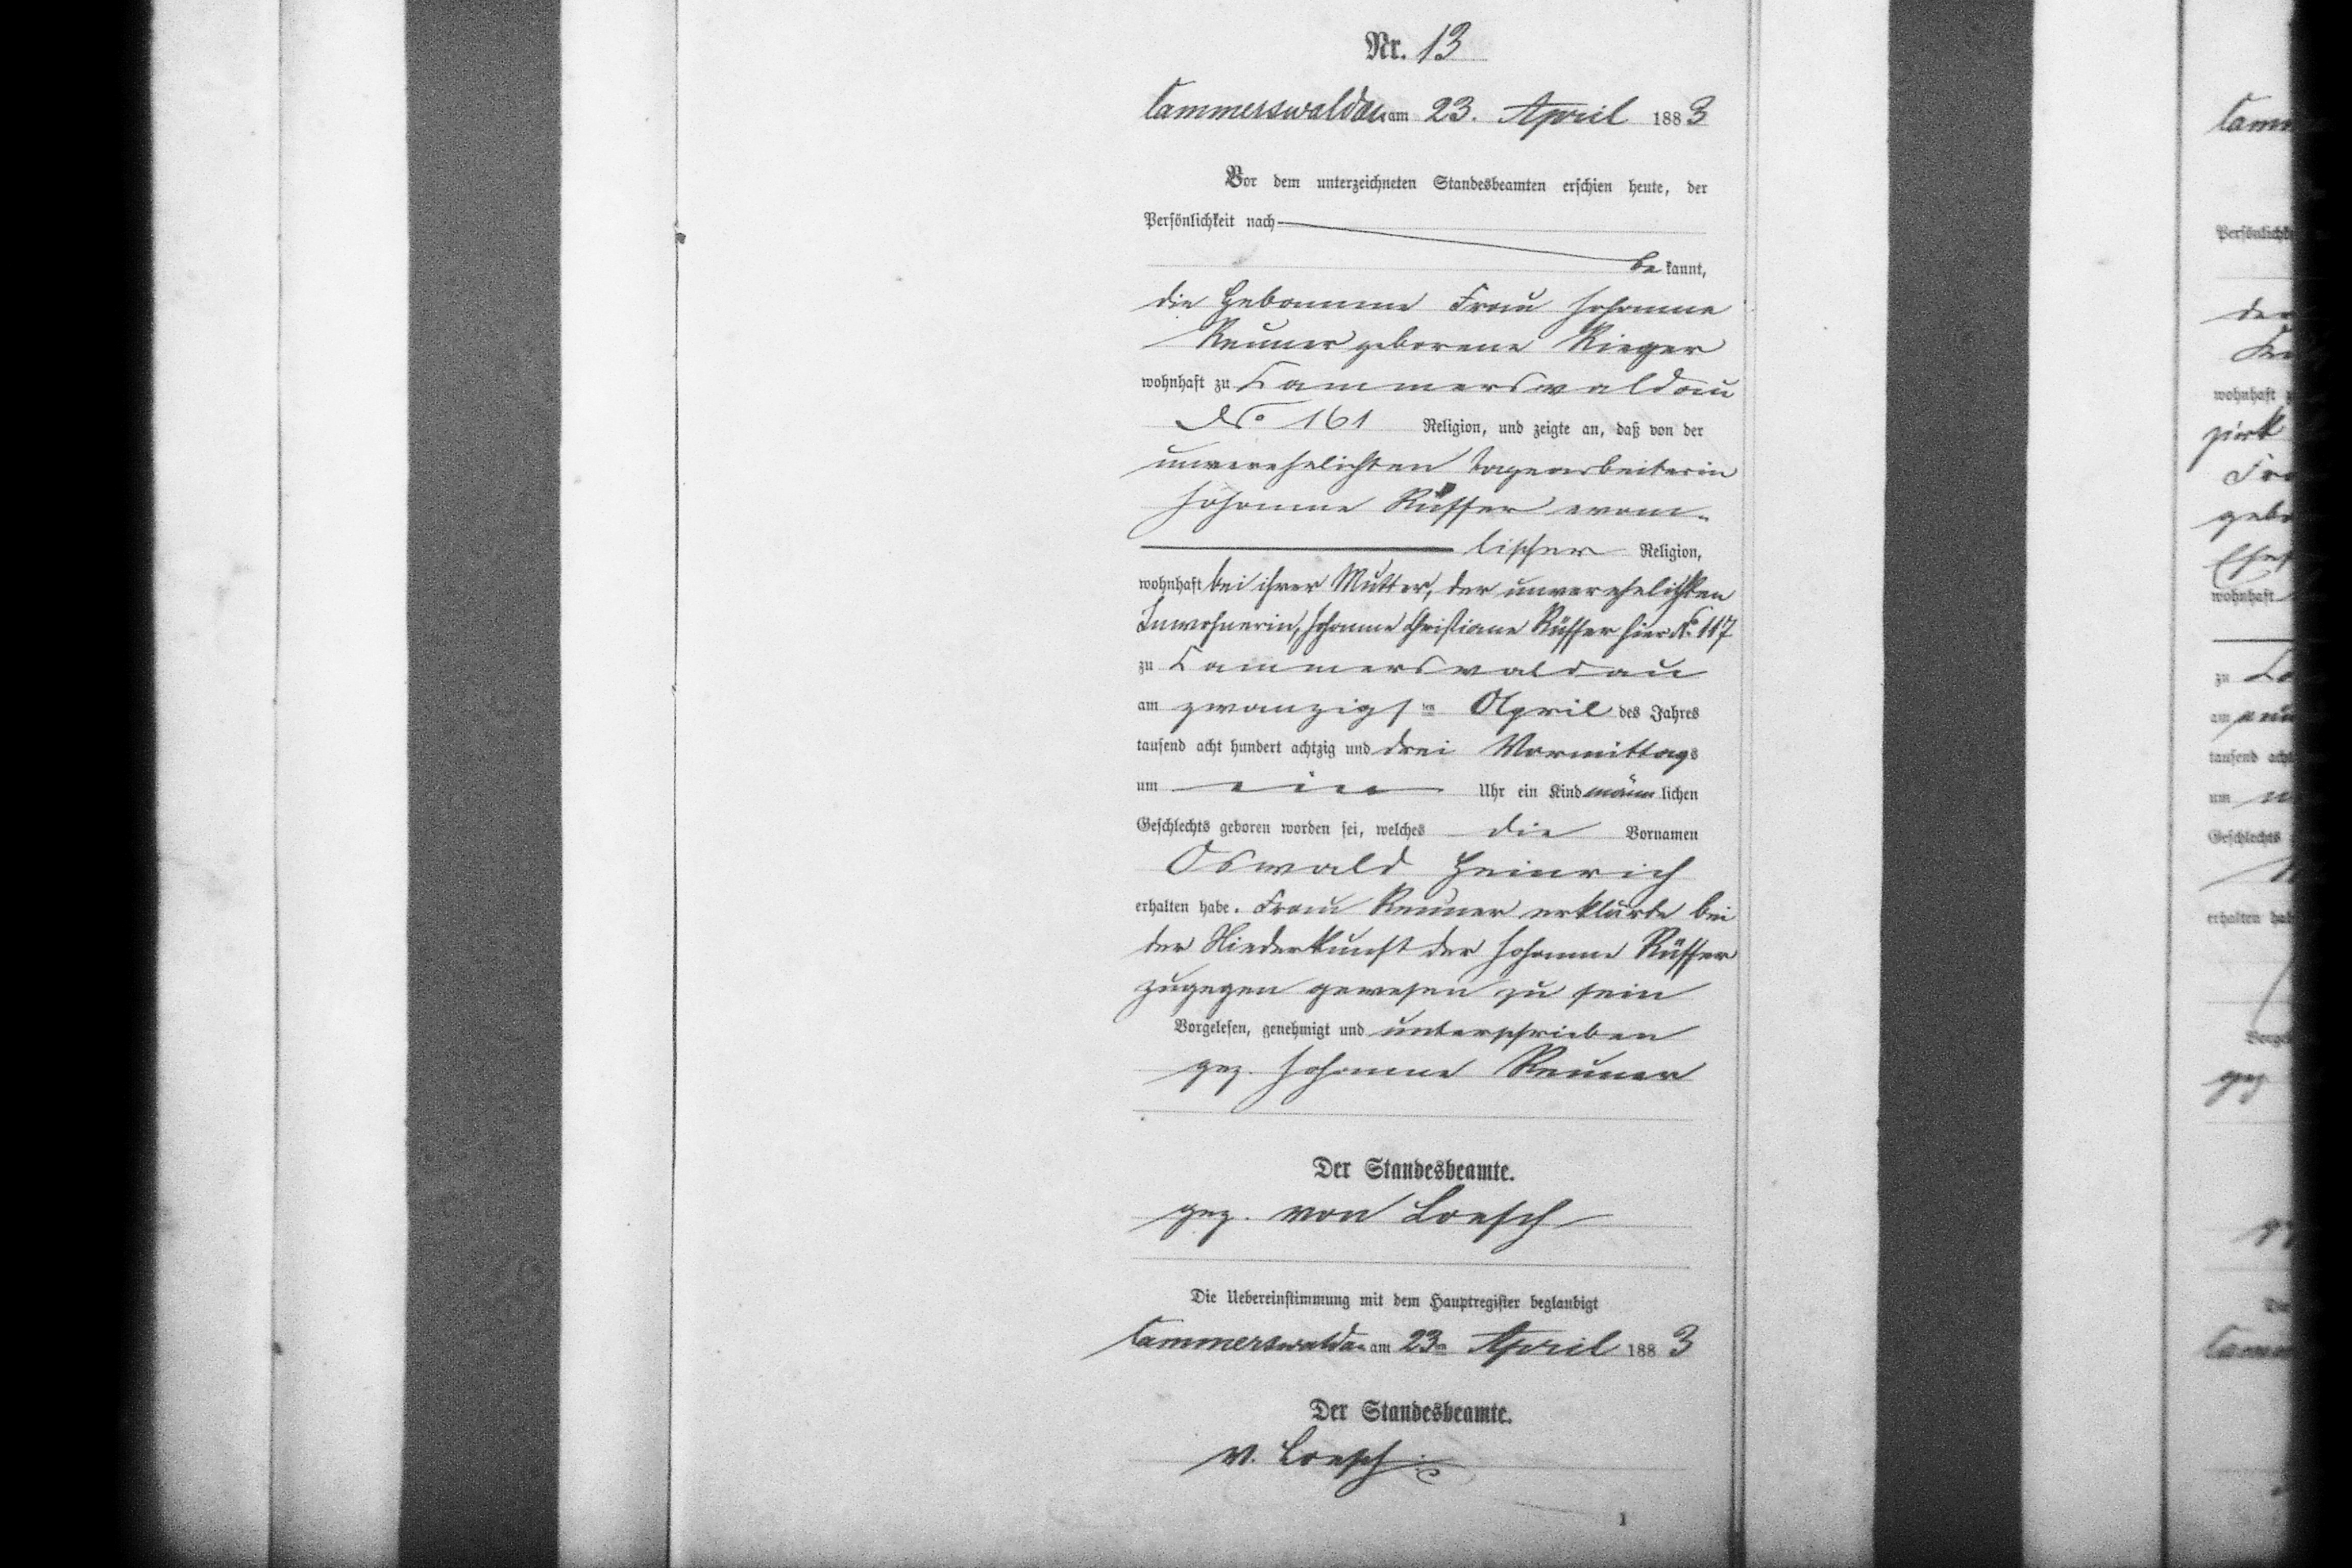 Nr. 13
Cammerswaldau am 23. April 1883
Vor dem unterzeichneten Standesbeamten erschien heute, der
Persönlichkeit nach
be kannt,
die Hebamme Frau Johanne
Renner geborene Rieger
wohnhaft zu Cammerswaldau
No 161 Religion, und zeigte an, daß von der
unverehelichten Tagearbeiterin
Johanne Rüffer evan-
lischer Religion,
wohnhaft bei ihrer Mutter, der unverehelichten
Inwohnerin, Johanne Christiane Rüffer hier No. 117
zu Cammerswaldau
am zwanzigsten April des Jahres
tausend acht hundert achtzig und drei Vormittags
um ein Uhr ein Kind männlichen
Geschlechts geboren worden sei, welches die Vornamen
Oswald Heinrich
erhalten habe. Frau Renner erklärte bei
der Niederkunft der Johanne Rüffer
zugegen gewesen zu sein
Vorgelesen, genehmigt und unterschrieben
gez. Johanne Renner
Der Standesbeamte.
gez. von Loesch
Die Uebereinstimmung mit dem Hauptregister beglaubigt
Cammerswaldau am 23ten April 1883
Der Standesbeamte.
v. Loesch
1